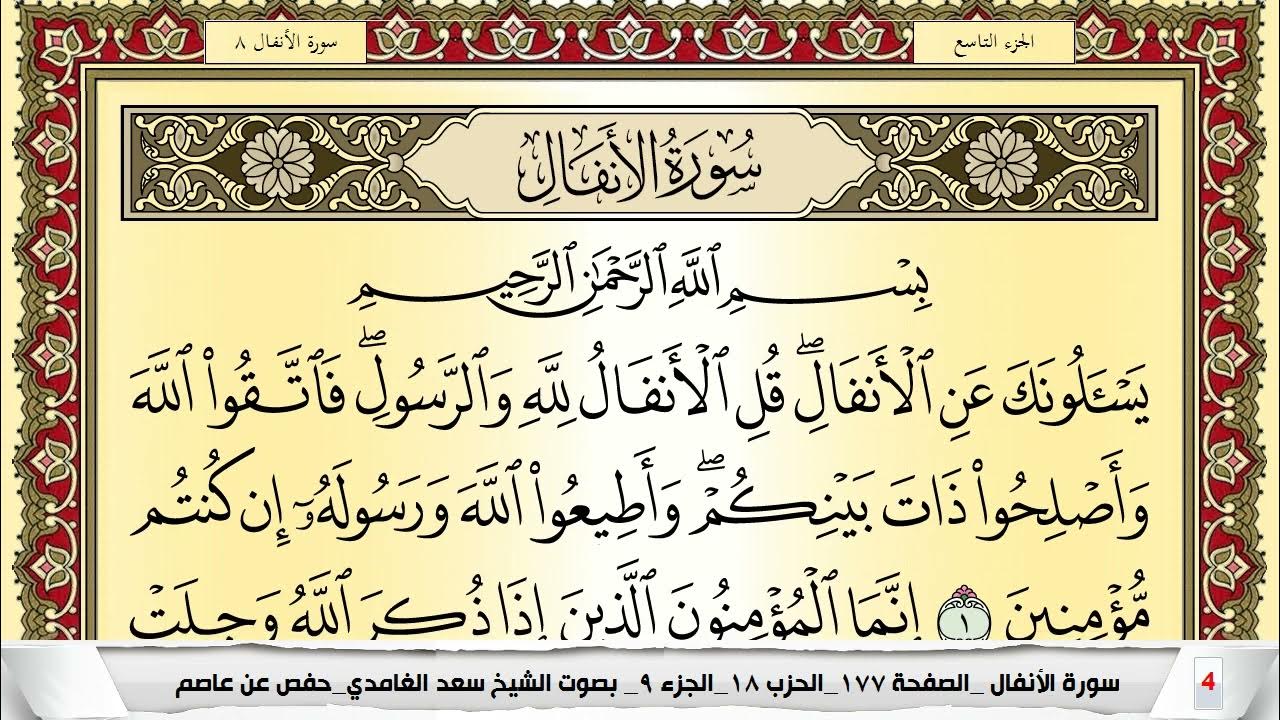 الجزء التاسع
سورة الأنفال ٨
سُورَةُ الأَنفَالِ
بِسْمِ ٱللَّهِ ٱلرَّحْمَٰنِ ٱلرَّحِيمِ
يَسْـَٔلُونَكَ عَنِ ٱلْأَنفَالِ ۖ قُلِ ٱلْأَنفَالُ لِلَّهِ وَٱلرَّسُولِ ۖ فَٱتَّقُوا۟ ٱللَّهَ
وَأَصْلِحُوا۟ ذَاتَ بَيْنِكُمْ ۖ وَأَطِيعُوا۟ ٱللَّهَ وَرَسُولَهُۥٓ إِن كُنتُم
مُّؤْمِنِينَ ١ إِنَّمَا ٱلْمُؤْمِنُونَ ٱلَّذِينَ إِذَا ذُكِرَ ٱللَّهُ وَجِلَتْ
4 سورة الأنفال _الصفحة ١٧٧_الحزب ١٨_الجزء ٩_ بصوت الشيخ سعد الغامدي_حفص عن عاصم